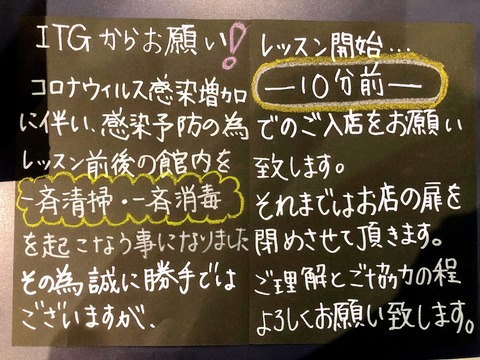 ITGからお願い!
コロナウィルス感染増加
に伴い、感染予防の為
レッスン前後の館内を
一斉清掃・一斉消毒
を起こなう事になりました
その為誠に勝手では
ございますが、
レッスン開始…
―10分前―
でのご入店をお願い
致します。
それまではお店の扉を
閉めさせて頂きます。
ご理解とご協力の程
よろしくお願い致します。